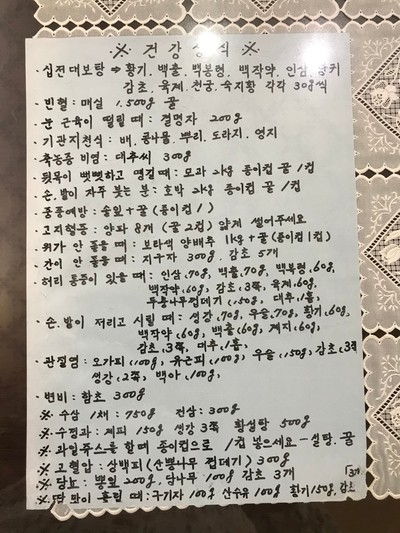 ※ 건강상식 ※
· 십전대보탕 ⇒ 황기, 백출, 백봉령, 백작약, 인삼, 당귀
감초, 육계, 천궁, 숙지황 각각 30g씩
· 빈혈 : 매실 1,500g 꿀
· 눈 근육이 떨릴 때 : 결명자 200g
· 기관지천식 : 배, 콩나물, 뿌리, 도라지, 영지
· 축농증 비염 : 대추씨 300g
· 뒷목이 뻣뻣하고 땡길 때 : 모과 2kg 종이컵 꿀 1컵
· 손,발이 자주 붓는 분 : 호박 2kg 종이컵 꿀 1컵
· 중풍예방 : 솔잎 + 꿀 (종이컵 1)
· 고지혈증 : 양파 8개 (꿀 2컵) 얇게 썰어주세요
· 위가 안 좋을 때 : 보라색 양배추 1kg + 꿀 (종이컵 1컵)
· 간이 안 좋을 때 : 지구자 300g, 감초 5개
· 허리 통증이 있을 때 : 인삼,70g, 백출,70g, 백복령,60g,
백작약,60g, 감초,3쪽, 육계,60g,
두충나무껍데기,150g, 대추,1홀,
· 손,발이 저리고 시릴 때 : 생강,70g, 우슬,70g, 황기,60g,
백작약,60g, 백출,60g, 계지,60g,
감초,3쪽, 대추,1홀,
· 관절염 : 오가피,100g, 유근피,100g, 우슬,150g, 감초,3쪽
생강,2쪽, 백아,100g,
· 변비 : 함초 300g
※ 수삼 1채 : 750g 건삼 : 300g
※ 수정과 : 계피 150g 생강 3쪽 황설탕 500g
※ 과일쥬스를 할때 종이컵으로 1컵 넣으세요 - 설탕, 꿀
※ 고혈압 : 상백피 (산뽕나무 껍데기) 300g
※ 당뇨 : 뽕잎 200g, 당나무 100g 감초 3개
※ 땀 많이 흘릴 때 : 구기자 100g 산수유 100g 황기 150g, 감초 3개